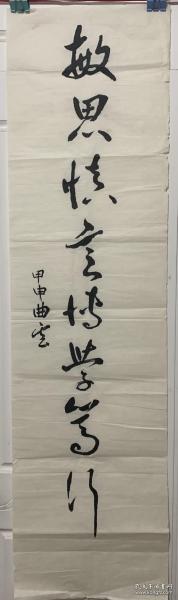 敏思慎言博学笃行
甲申曲云